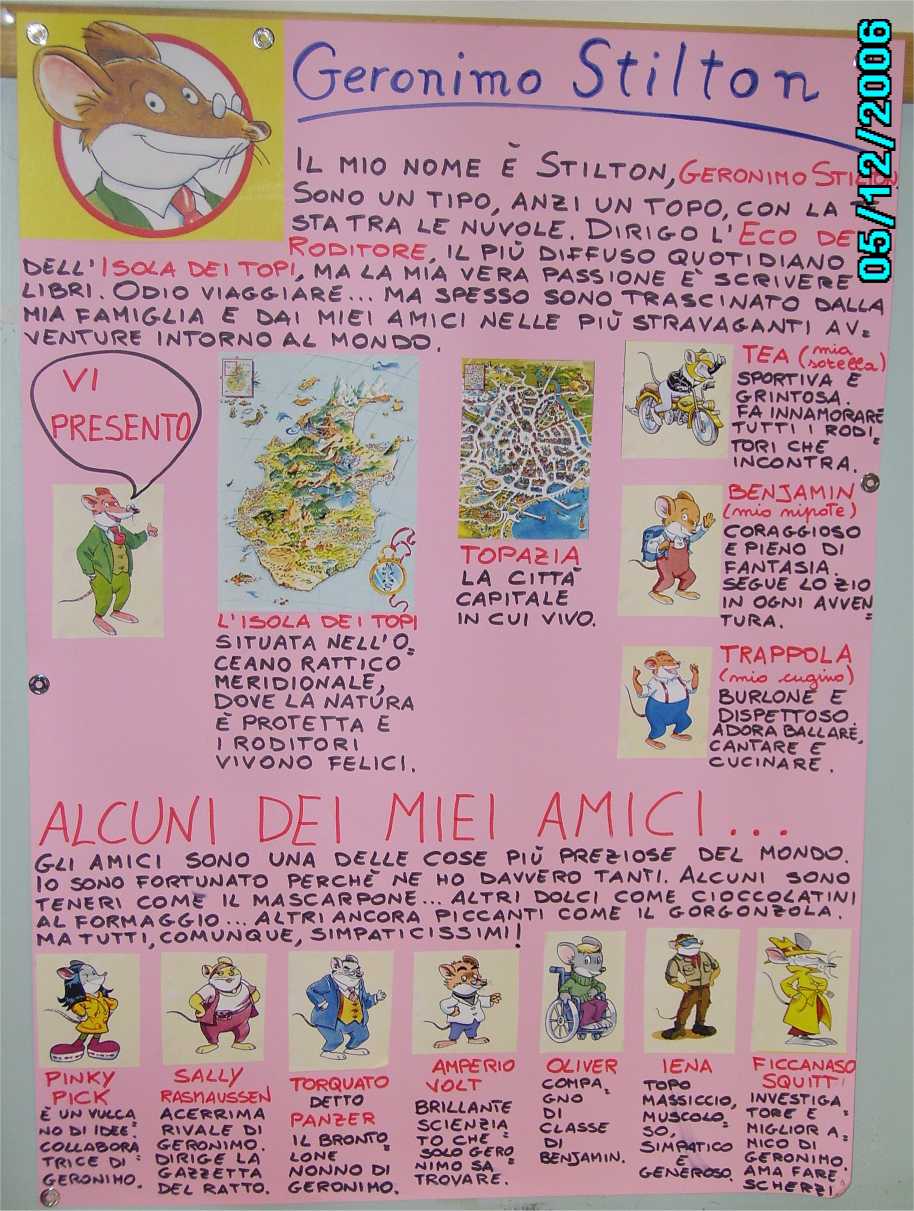 Geronimo Stilton
05/12/2006
IL MIO NOME È STILTON, GERONIMO STILTON
SONO UN TIPO, ANZI UN TOPO, CON LA
STA TRA LE NUVOLE. DIRIGO L'ECO DE
RODITORE, IL PIÙ DIFFUSO QUOTIDIANO
DELL'ISOLA DEI TOPI, MA LA MIA VERA PASSIONE È SCRIVERE
LIBRI. ODIO VIAGGIARE... MA SPESSO SONO TRASCINATO DALLA
MIA FAMIGLIA E DAI MIEI AMICI NELLE PIÙ STRAVAGANTI AV=
VENTURE INTORNO AL MONDO.
VI
PRESENTO
L'ISOLA DEI TOPI
SITUATA NELL'O=
CEANO RATTICO
MERIDIONALE,
DOVE LA NATURA
È PROTETTA E
I RODITORI
VIVONO FELICI.
TOPAZIA
LA CITTÀ
CAPITALE
IN CUI VIVO.
TEA (mia
sorella)
SPORTIVA E
GRINTOSA.
FA INNAMORARE
TUTTI I RODI=
TORI CHE
INCONTRA.
BENJAMIN
(mio nipote)
CORAGGIOSO
E PIENO DI
FANTASIA.
SEGUE LO ZIO
IN OGNI AVVEN=
TURA.
TRAPPOLA
(mio cugino)
BURLONE E
DISPETTOSO.
ADORA BALLARE,
CANTARE E
CUCINARE.
ALCUNI DEI MIEI AMICI...
GLI AMICI SONO UNA DELLE COSE PIÙ PREZIOSE DEL MONDO.
IO SONO FORTUNATO PERCHÈ NE HO DAVVERO TANTI. ALCUNI SONO
TENERI COME IL MASCARPONE... ALTRI DOLCI COME CIOCCOLATINI
AL FORMAGGIO... ALTRI ANCORA PICCANTI COME IL GORGONZOLA.
MA TUTTI, COMUNQUE, SIMPATICISSIMI!
PINKY
PICK
È UN VULCA=
NO DI IDEE.
COLLABORA=
TRICE DI
GERONIMO.
SALLY
RASMAUSSEN
ACERRIMA
RIVALE DI
GERONIMO.
DIRIGE LA
GAZZETTA
DEL RATTO.
TORQUATO
DETTO
PANZER
IL BRONTO=
LONE
NONNO DI
GERONIMO.
AMPERIO
VOLT
BRILLANTE
SCIENZIA=
TO CHE
SOLO GERO=
NIMO SA
TROVARE.
OLIVER
COMPA=
GNO
DI
CLASSE
DI
BENJAMIN.
IENA
TOPO
MASSICCIO,
MUSCOLO=
SO,
SIMPATICO
E
GENEROSO.
FICCANASO
SQUITT
INVESTIGA=
TORE E
MIGLIOR A=
MICO DI
GERONIMO.
AMA FARE
SCHERZI